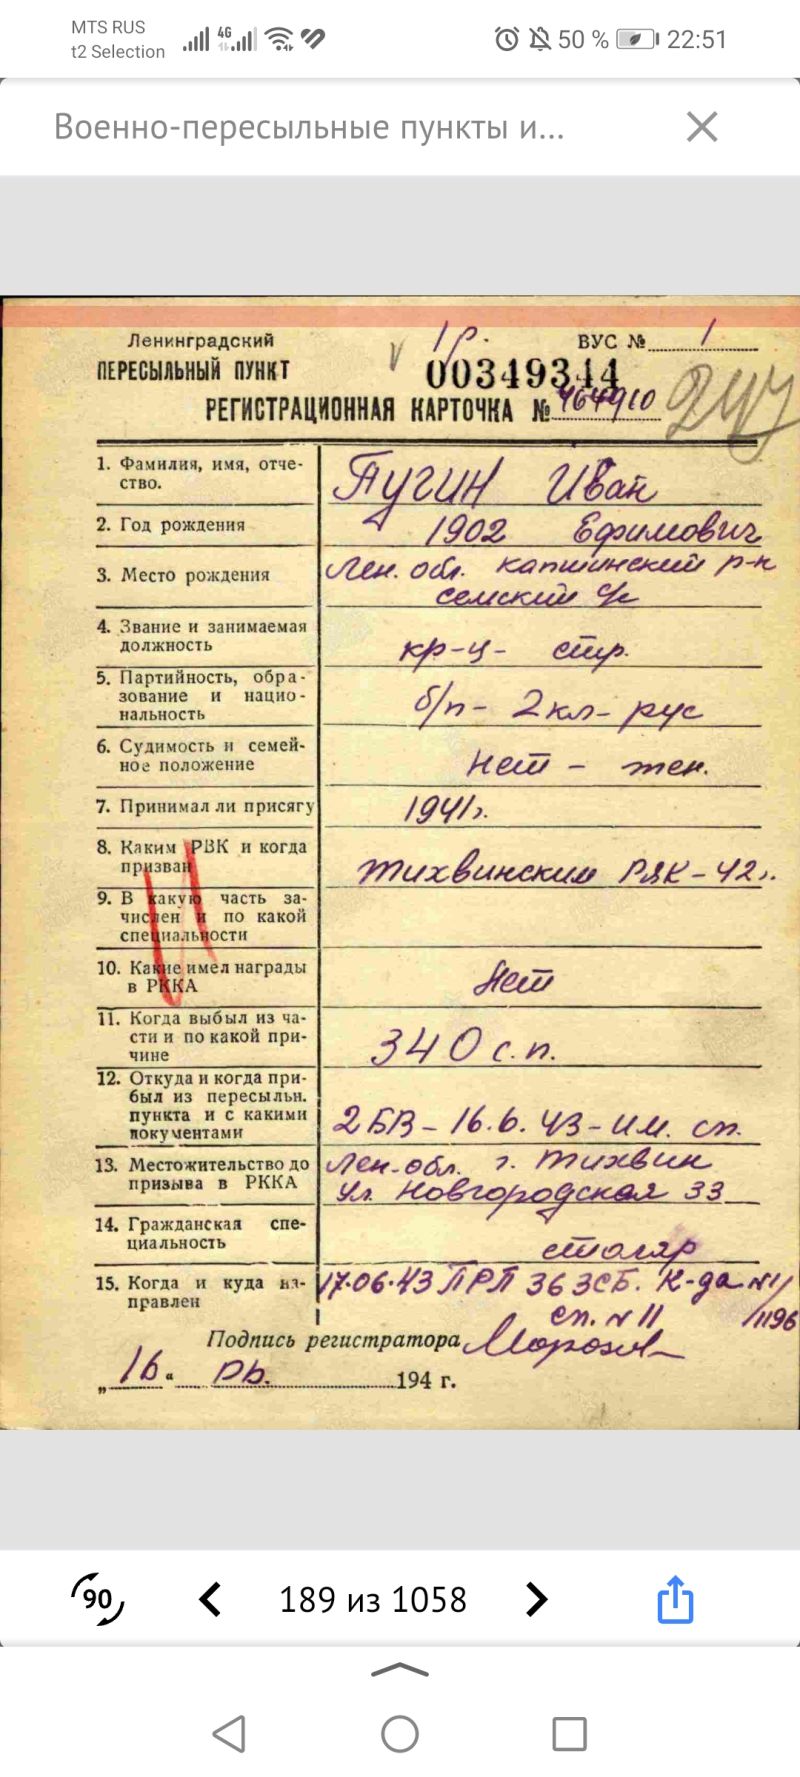 MTS RUS
t2 Selection
4G
50 %
22:51
Военно-пересыльные пункты и...
Ленинградский
ПЕРЕСЫЛЬНЫЙ ПУНКТ
v 1р.
ВУС № 1
00349314
РЕГИСТРАЦИОННАЯ КАРТОЧКА № 464910
247
1. Фамилия, имя, отче-
ство.
Пугин Иван
2. Год рождения
1902 Ефимович
3. Место рождения
Лен. обл. Капшинский р-н
семский с/с
4. Звание и занимаемая
должность
кр-ц- стр.
5. Партийность, обра-
зование и нацио-
нальность
б/п- 2кл- рус
6. Судимость и семей-
ное положение
Нет - жен.
7. Принимал ли присягу
1941г.
8. Каким РВК и когда
призван
Тихвинским РВК - 42г.
9. В какую часть за-
числен и по какой
специальности
10. Какие имел награды
в РККА
Нет
11. Когда выбыл из ча-
сти и по какой при-
чине
340 с.п.
12. Откуда и когда при-
был из пересыльн.
пункта и с какими
документами
2 БВ - 16.6.43 - им. сп.
13. Местожительство до
призыва в РККА
Лен. обл. г. Тихвин
ул. Новгородская 33
14. Гражданская спе-
циальность
столяр
15. Когда и куда на-
правлен
17.06.43 ПРП 36 ЗСБ. К-да №1/
/1196
сп. № 11
Подпись регистратора Морозов
„ 16 “ 194 г.
90
189 из 1058